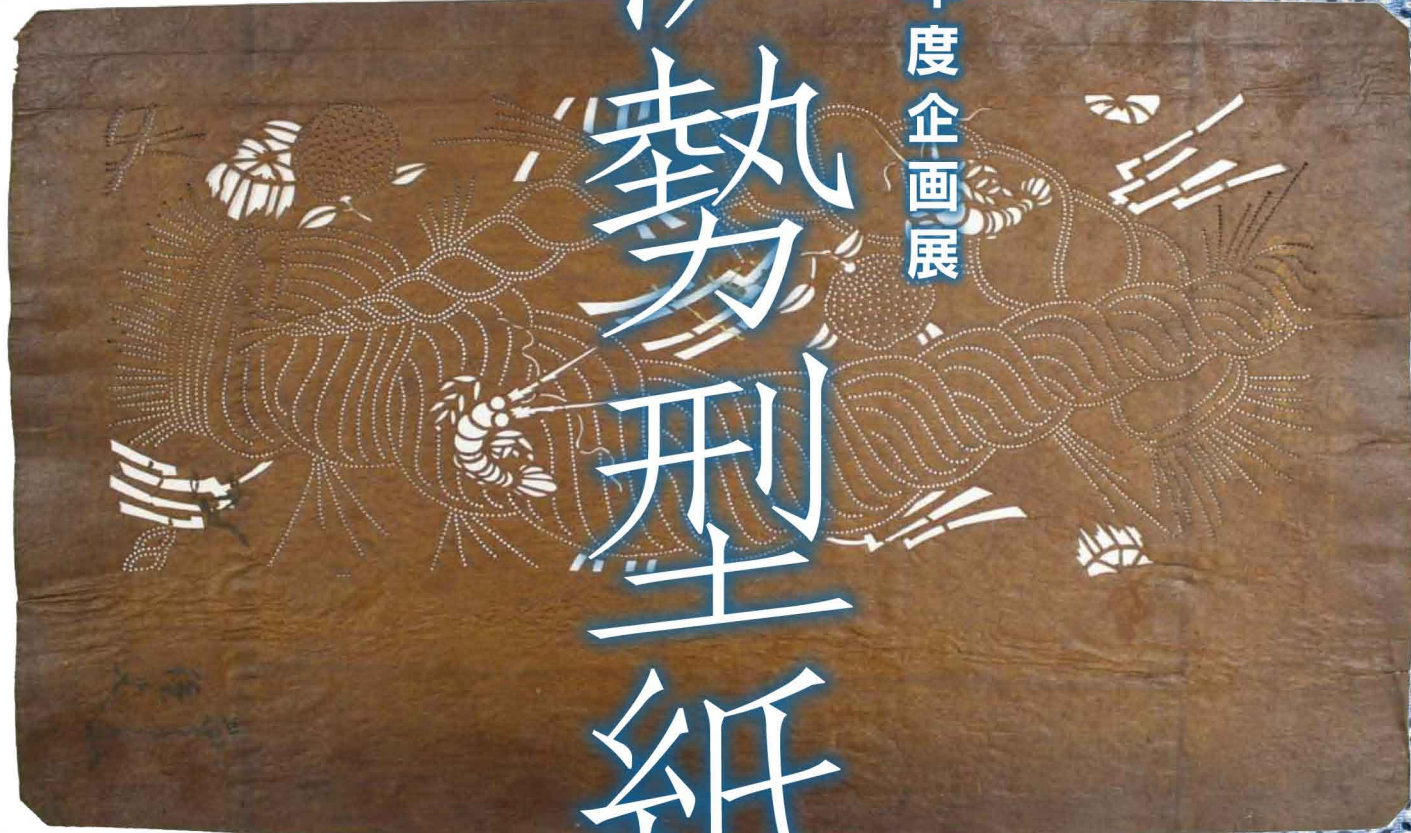 年度企画展
勢型紙